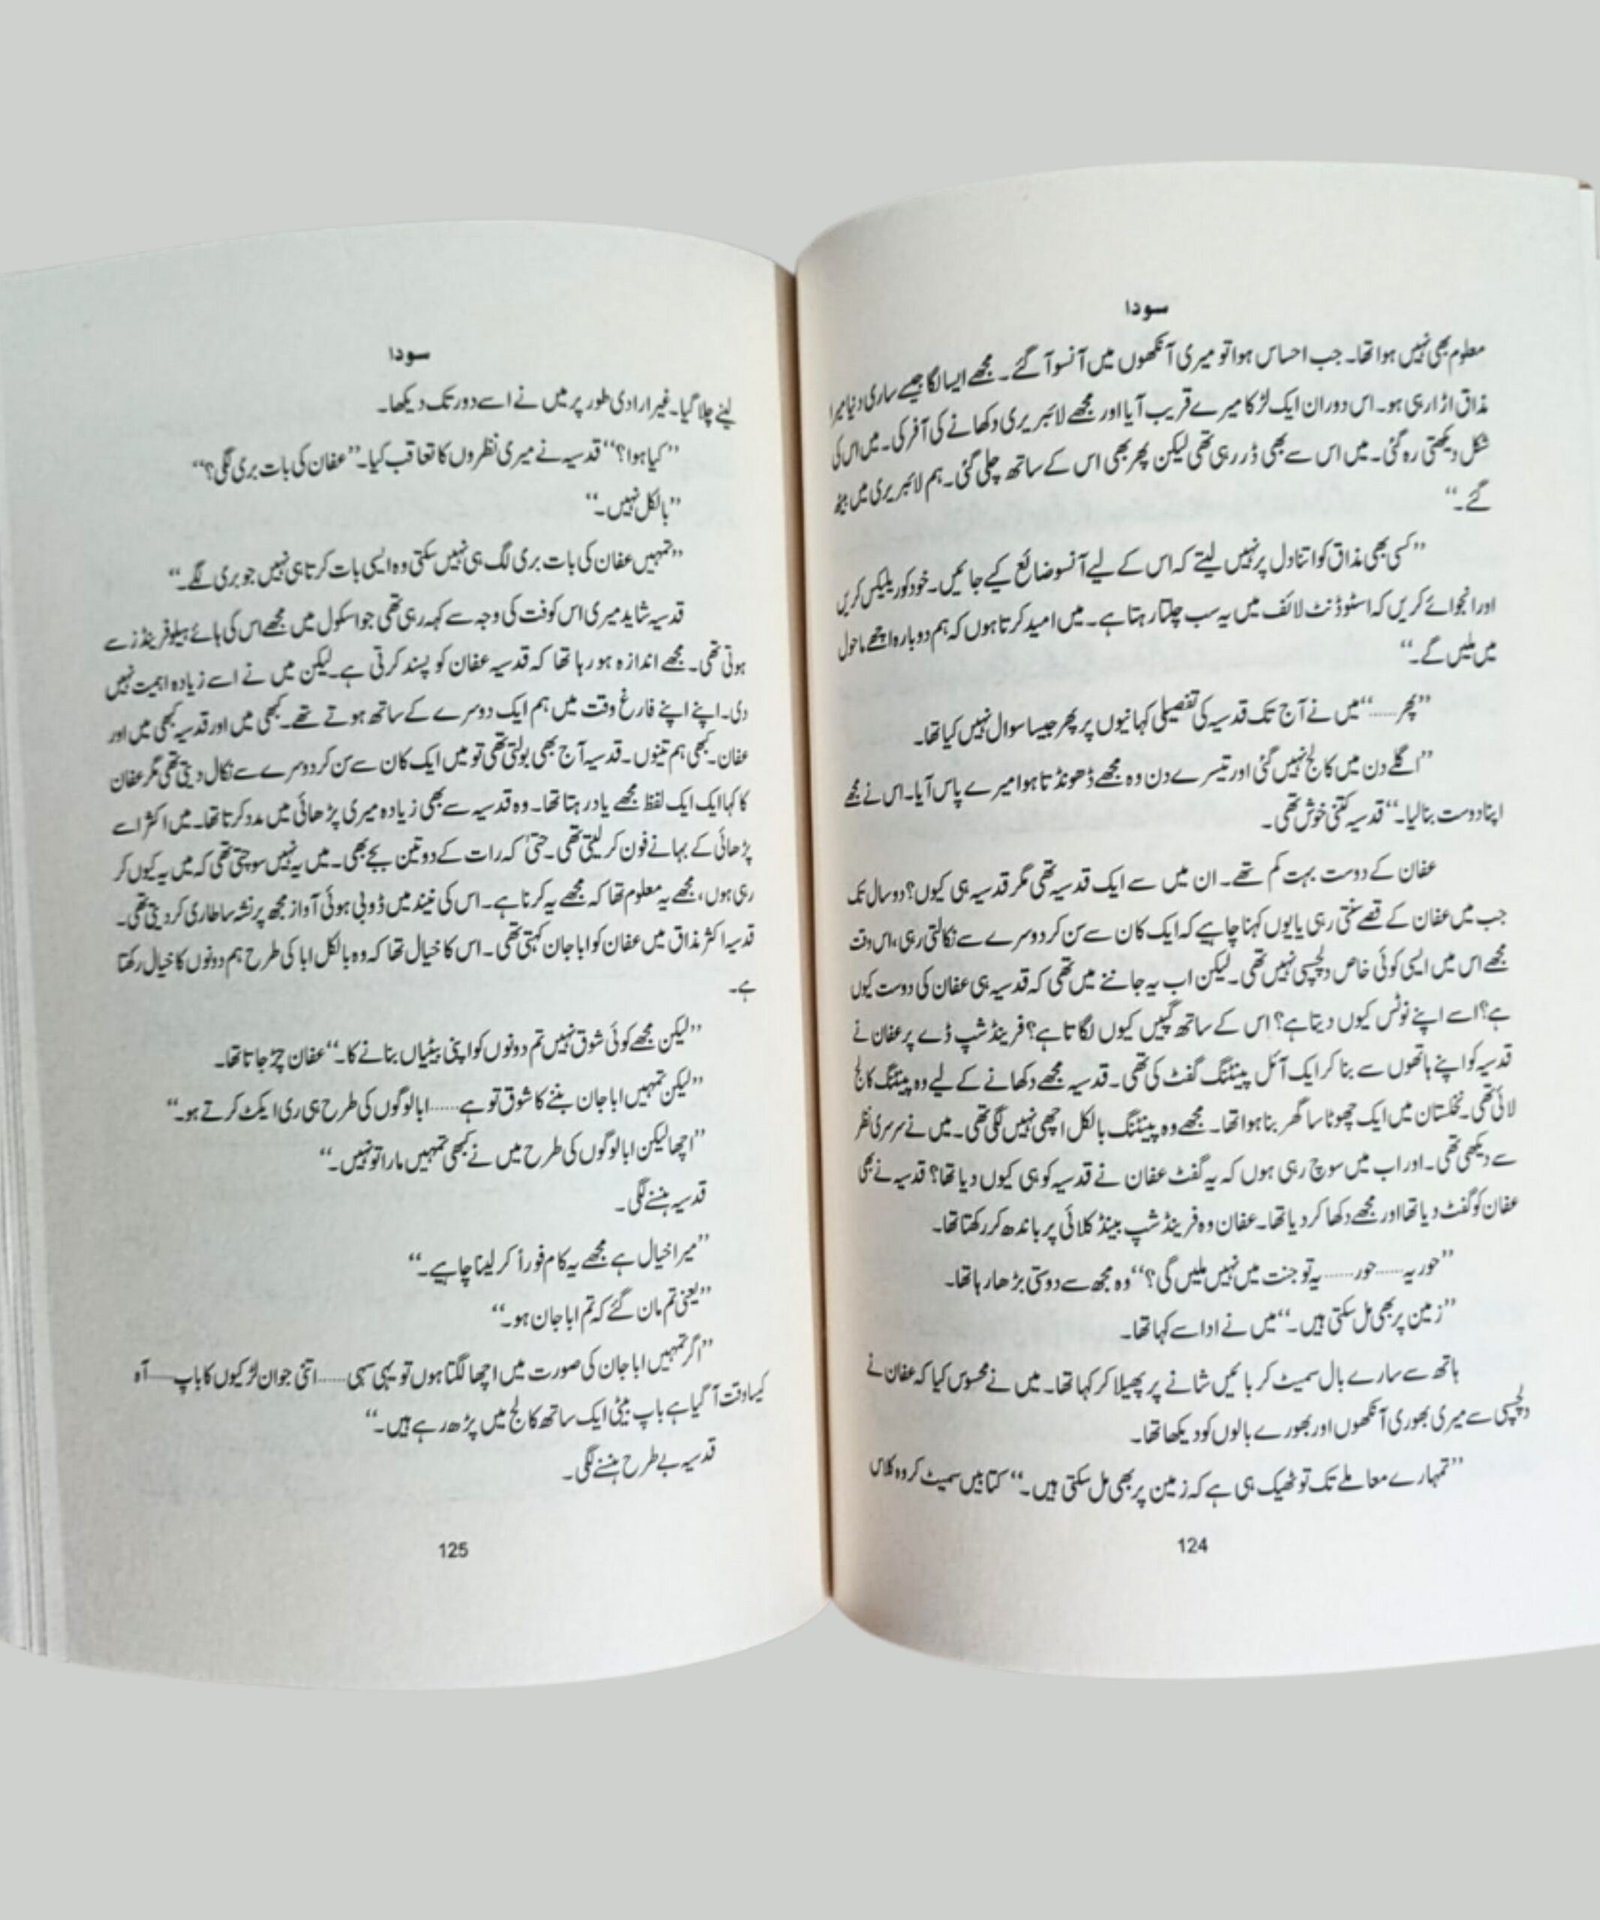 سودا
معلوم بھی نہیں ہوا تھا۔ جب احساس ہوا تو میری آنکھوں میں آنسو آ گئے۔ مجھے ایسا لگا جیسے ساری دنیا میرا
مذاق اڑا رہی ہو۔ اس دوران ایک لڑکا میرے قریب آیا اور مجھے لائبریری دکھانے کی آفر کی۔ میں اس کی
شکل دیکھتی رہ گئی۔ میں اس سے بھی ڈر رہی تھی لیکن پھر بھی اس کے ساتھ چلی گئی۔ ہم لائبریری میں بیٹھ
گئے۔‘‘
’’کسی بھی مذاق کو اتنا دل پر نہیں لیتے کہ اس کے لیے آنسو ضائع کیے جائیں۔ خود کو ریلیکس کریں
اور انجوائے کریں کہ اسٹوڈنٹ لائف میں یہ سب چلتا رہتا ہے۔ میں امید کرتا ہوں کہ ہم دوبارہ اچھے ماحول
میں ملیں گے۔‘‘
’’پھر......‘‘ میں نے آج تک قدسیہ کی تفصیلی کہانیوں پر پھر جیسا سوال نہیں کیا تھا۔
’’اگلے دن میں کالج نہیں گئی اور تیسرے دن وہ مجھے ڈھونڈتا ہوا میرے پاس آیا۔ اس نے مجھے
اپنا دوست بنا لیا۔‘‘ قدسیہ کتنی خوش تھی۔
عفان کے دوست بہت کم تھے۔ ان میں سے ایک قدسیہ تھی مگر قدسیہ ہی کیوں؟ دو سال تک
جب میں عفان کے قصے سنتی رہی یا یوں کہنا چاہیے کہ ایک کان سے سن کر دوسرے سے نکالتی رہی، اس وقت
مجھے اس میں ایسی کوئی خاص دلچسپی نہیں تھی۔ لیکن اب یہ جاننے میں تھی کہ قدسیہ ہی عفان کی دوست کیوں
ہے؟ اسے اپنے نوٹس کیوں دیتا ہے؟ اس کے ساتھ گپیں کیوں لگاتا ہے؟ فرینڈ شپ ڈے پر عفان نے
قدسیہ کو اپنے ہاتھوں سے بنا کر ایک آئل پینٹنگ گفٹ کی تھی۔ قدسیہ مجھے دکھانے کے لیے وہ پینٹنگ کالج
لائی تھی۔ نخلستان میں ایک چھوٹا سا گھر بنا ہوا تھا۔ مجھے وہ پینٹنگ بالکل اچھی نہیں لگی تھی۔ میں نے سرسری نظر
سے دیکھی تھی۔ اور اب میں سوچ رہی ہوں کہ یہ گفٹ عفان نے قدسیہ کو ہی کیوں دیا تھا؟ قدسیہ نے بھی
عفان کو گفٹ دیا تھا اور مجھے دکھا کر دیا تھا۔ عفان وہ فرینڈ شپ بینڈ کلائی پر باندھ کر رکھتا تھا۔
’’حوریہ...... حور...... یہ تو جنت میں نہیں ملیں گی؟‘‘ وہ مجھ سے دوستی بڑھا رہا تھا۔
’’زمین پر بھی مل سکتی ہیں۔‘‘ میں نے ادا سے کہا تھا۔
ہاتھ سے سارے بال سمیٹ کر بائیں شانے پر پھیلا کر کہا تھا۔ میں نے محسوس کیا کہ عفان نے
دلچسپی سے میری بھوری آنکھوں اور بھورے بالوں کو دیکھا تھا۔
’’تمہارے معاملے تک تو ٹھیک ہی ہے کہ زمین پر بھی مل سکتی ہیں۔‘‘ کتابیں سمیٹ کر وہ کلاس
124
سودا
لینے چلا گیا۔ غیر ارادی طور پر میں نے اسے دور تک دیکھا۔
’’کیا ہوا؟‘‘ قدسیہ نے میری نظروں کا تعاقب کیا۔ ’’عفان کی بات بری لگی؟‘‘
’’بالکل نہیں۔‘‘
’’تمہیں عفان کی بات بری لگ ہی نہیں سکتی وہ ایسی بات کرتا ہی نہیں جو بری لگے۔‘‘
قدسیہ شاید میری اس کوفت کی وجہ سے کہہ رہی تھی جو اسکول میں مجھے اس کی ہائے ہیلو فرینڈز سے
ہوتی تھی۔ مجھے اندازہ ہو رہا تھا کہ قدسیہ عفان کو پسند کرتی ہے۔ لیکن میں نے اسے زیادہ اہمیت نہیں
دی۔ اپنے اپنے فارغ وقت میں ہم ایک دوسرے کے ساتھ ہوتے تھے۔ کبھی میں اور قدسیہ کبھی میں اور
عفان۔ کبھی ہم تینوں۔ قدسیہ آج بھی بولتی تھی تو میں ایک کان سے سن کر دوسرے سے نکال دیتی تھی مگر عفان
کا کہا ایک ایک لفظ مجھے یاد رہتا تھا۔ وہ قدسیہ سے بھی زیادہ میری پڑھائی میں مدد کرتا تھا۔ میں اکثر اسے
پڑھائی کے بہانے فون کر لیتی تھی۔ حتیٰ کہ رات کے دو تین بجے بھی۔ میں یہ نہیں سوچتی تھی کہ میں یہ کیوں کر
رہی ہوں، مجھے یہ معلوم تھا کہ مجھے یہ کرنا ہے۔ اس کی نیند میں ڈوبی ہوئی آواز مجھ پر نشہ سا طاری کر دیتی تھی۔
قدسیہ اکثر مذاق میں عفان کو ابا جان کہتی تھی۔ اس کا خیال تھا کہ وہ بالکل ابا کی طرح ہم دونوں کا خیال رکھتا
ہے۔
’’لیکن مجھے کوئی شوق نہیں تم دونوں کو اپنی بیٹیاں بنانے کا۔‘‘ عفان چڑ جاتا تھا۔
’’لیکن تمہیں ابا جان بننے کا شوق تو ہے...... ابا لوگوں کی طرح ہی ری ایکٹ کرتے ہو۔‘‘
’’اچھا لیکن ابا لوگوں کی طرح میں نے کبھی تمہیں مارا تو نہیں۔‘‘
قدسیہ ہننے لگی۔
’’میرا خیال ہے مجھے یہ کام فوراً کر لینا چاہیے۔‘‘
’’یعنی تم مان گئے کہ تم ابا جان ہو۔‘‘
’’اگر تمہیں ابا جان کی صورت میں اچھا لگتا ہوں تو یہی سہی...... اتنی جوان لڑکیوں کا باپ...... آہ
کیسا وقت آ گیا ہے باپ بیٹی ایک ساتھ کالج میں پڑھ رہے ہیں۔‘‘
قدسیہ بے طرح ہننے لگی۔
125